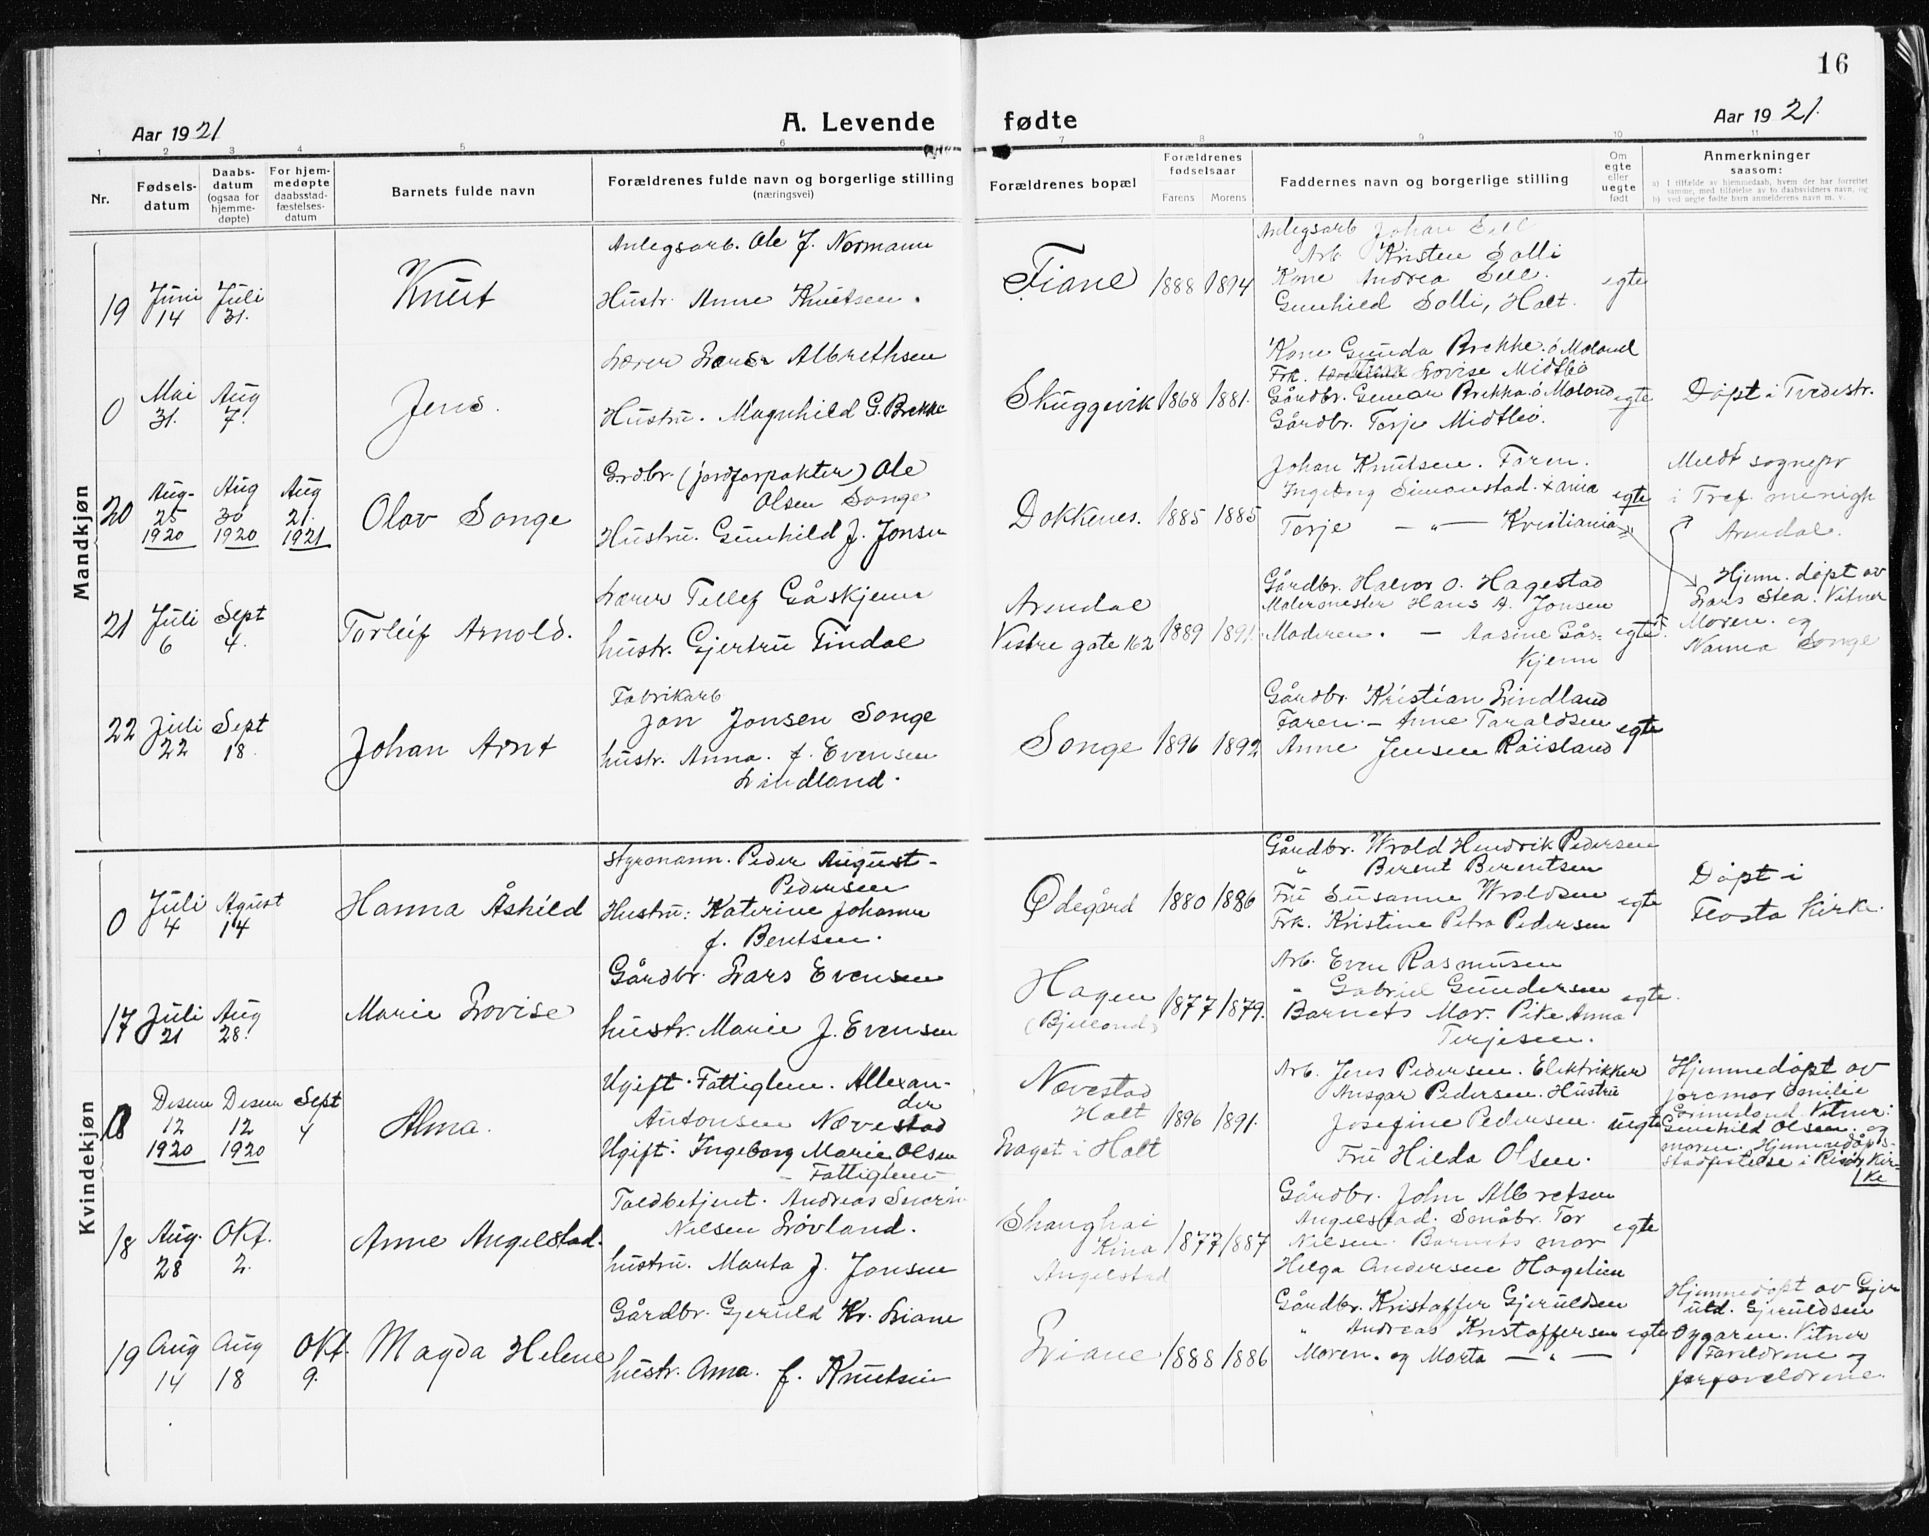 16
Aar 1921
A. Levende fødte
Aar 1921.
1 2 3 4 5 6 7 8 9 10 11
Nr.
Fødsels-
datum
Daabs-
datum
(ogsaa for
hjemme-
døpte)
For hjem-
medøpte
daabsstad-
fæstelses-
datum
Barnets fulde navn
Forældrenes fulde navn og borgerlige stilling
(næringsvei)
Forældrenes bopæl
Forældrenes
fødselsaar
Farens Morens
Faddernes navn og borgerlige stilling
Om
egte
eller
uegte
født
Anmerkninger
saasom:
a) I tilfælde av hjemmedaab, hvem der har forrettet
samme, med tilføielse av to daabsvidners navn, og
b) ved uegte fødte barn anmelderens navn m. v.
Mandkjøn
19
Juni
14
Juli
31.
Knut
Anlegsarb. Ole J. Normann
Hustr. Anne Knutsen.
Fiane
1888 1894
Anlegsarb Johan
Arb. Kristen Solli
Kone Andrea
Gunhild Solli, Holt.
egte
0
Mai
31.
Aug
7.
Jens.
Lærer Lars Albrethsen
Hustru. Magnhild G. Brekke
Skuggevik
1868 1881.
Kone Gunda Brekke. ø Moland
Frk. Lovise Midtbø
Gårdbr. Gunar Brekka ø Moland
Gårdbr. Torje Midtbø.
egte
Døpt i Tvedestr.
20
Aug.
25
1920
Aug
30
1920
Aug
21.
1921
Olav Songe
Grdbr. (jordforpakter) Ole
Olsen Songe
Hustru. Gunhild J. Jonsen
Dokkenes.
1885 1885
Johan Knutsen. Faren.
Ingeborg Simonstad. Xania
Torje — " — Kristiania
egte
Meldt sognepr
i Tref. menigh
Arendal.
21
Juli
6
Sept
4.
Torleif Arnold.
Lærer Tellef Gåskjenn
hustr. Gjertru Tindal
Arendal
Vestre gate 162
1889 1891.
Gårdbr. Halvor O. Hagestad
Malermester Hans A. Jonsen
Moderen. — Aasine Gås-
kjenn
egte
Hjem. døpt av
Lars Stea. Vitner
Moren. og
Nanna Songe
22
Juli
22
Sept
18.
Johan Arnt
Fabrikarb
Jon Jonsen Songe
hustr. Anna. f. Evensen
Lindland.
Songe
1896 1892
Gårdbr. Kristian Lindland
Faren. — Anne Taraldsen
Anne Jensen Røisland
egte
Kvindekjøn
0
Juli
4
Agust
14
Hanna Åshild
Styrmann. Peder August-
Pedersen
Hustru: Katerine Johanne
f. Bentsen.
Ødegård
1880 1886
Gårdbr. Wrold Hendrik Pedersen
" Berent Berentsen
Fru Susanne Wroldsen
Frk. Kristine Petra Pedersen
egte
Døpt i
Flosta Kirke.
17
Juli
21
Aug
28.
Marie Lovise
Gårdbr. Lars Evensen
hustr. Marie J. Evensen
Hagen
1877 1879.
Arb. Even Rasmusen
" Gabriel Gundersen
Barnets Mor. Pike Anna
Terjesen.
egte.
Desem
12
1920
Desem
12
1920
Sept
4
Alma.
Ugift. Fattiglem. Allexan-
der
Antonsen Nævestad
Ugift: Ingeborg Marie Olsen
— Fattiglem
Nævestad
Holt
Laget i Holt
1896 1891.
Arb. Jens Pedersen. Elektrikker
Ansgar Pedersen. Hustru
Josefine Pedersen.
Fru Hilda Olsen.
uegte
Hjemmedøpt av
jormor Emilie
Grimesland. Vitner:
Gunhild Olsen. og
moren. Hjemmedåps-
stadfestelse i Risør Kir-
ke
18
Aug.
28
Okt.
2.
Anne Angelstad.
Toldbetjent. Andreas Severin
Nilsen Løvland.
hustru. Marta J. Jonsen
Shanghai
Kina
Angelstad
1877 1887
Gårdbr. John Albretsen
Angelstad. Småbr. Tor
Nilsen. Barnets mor
Helga Andersen Hagelien
egte
19
Aug
14
Aug
18
Okt.
9.
Magda Helene
Gårdbr. Gjeruld Kr. Liane
hustr. Anna. f. Knutsen
Liane
1888 1886
Gårdbr. Kristoffer Gjeruldsen
" Andreas Kristoffersen
Moren. og Marta — " —
egte
Hjemmedøpt av Gjer
uld. Gjeruldsen
Vitner
Foreldrene og
forforeldrene.